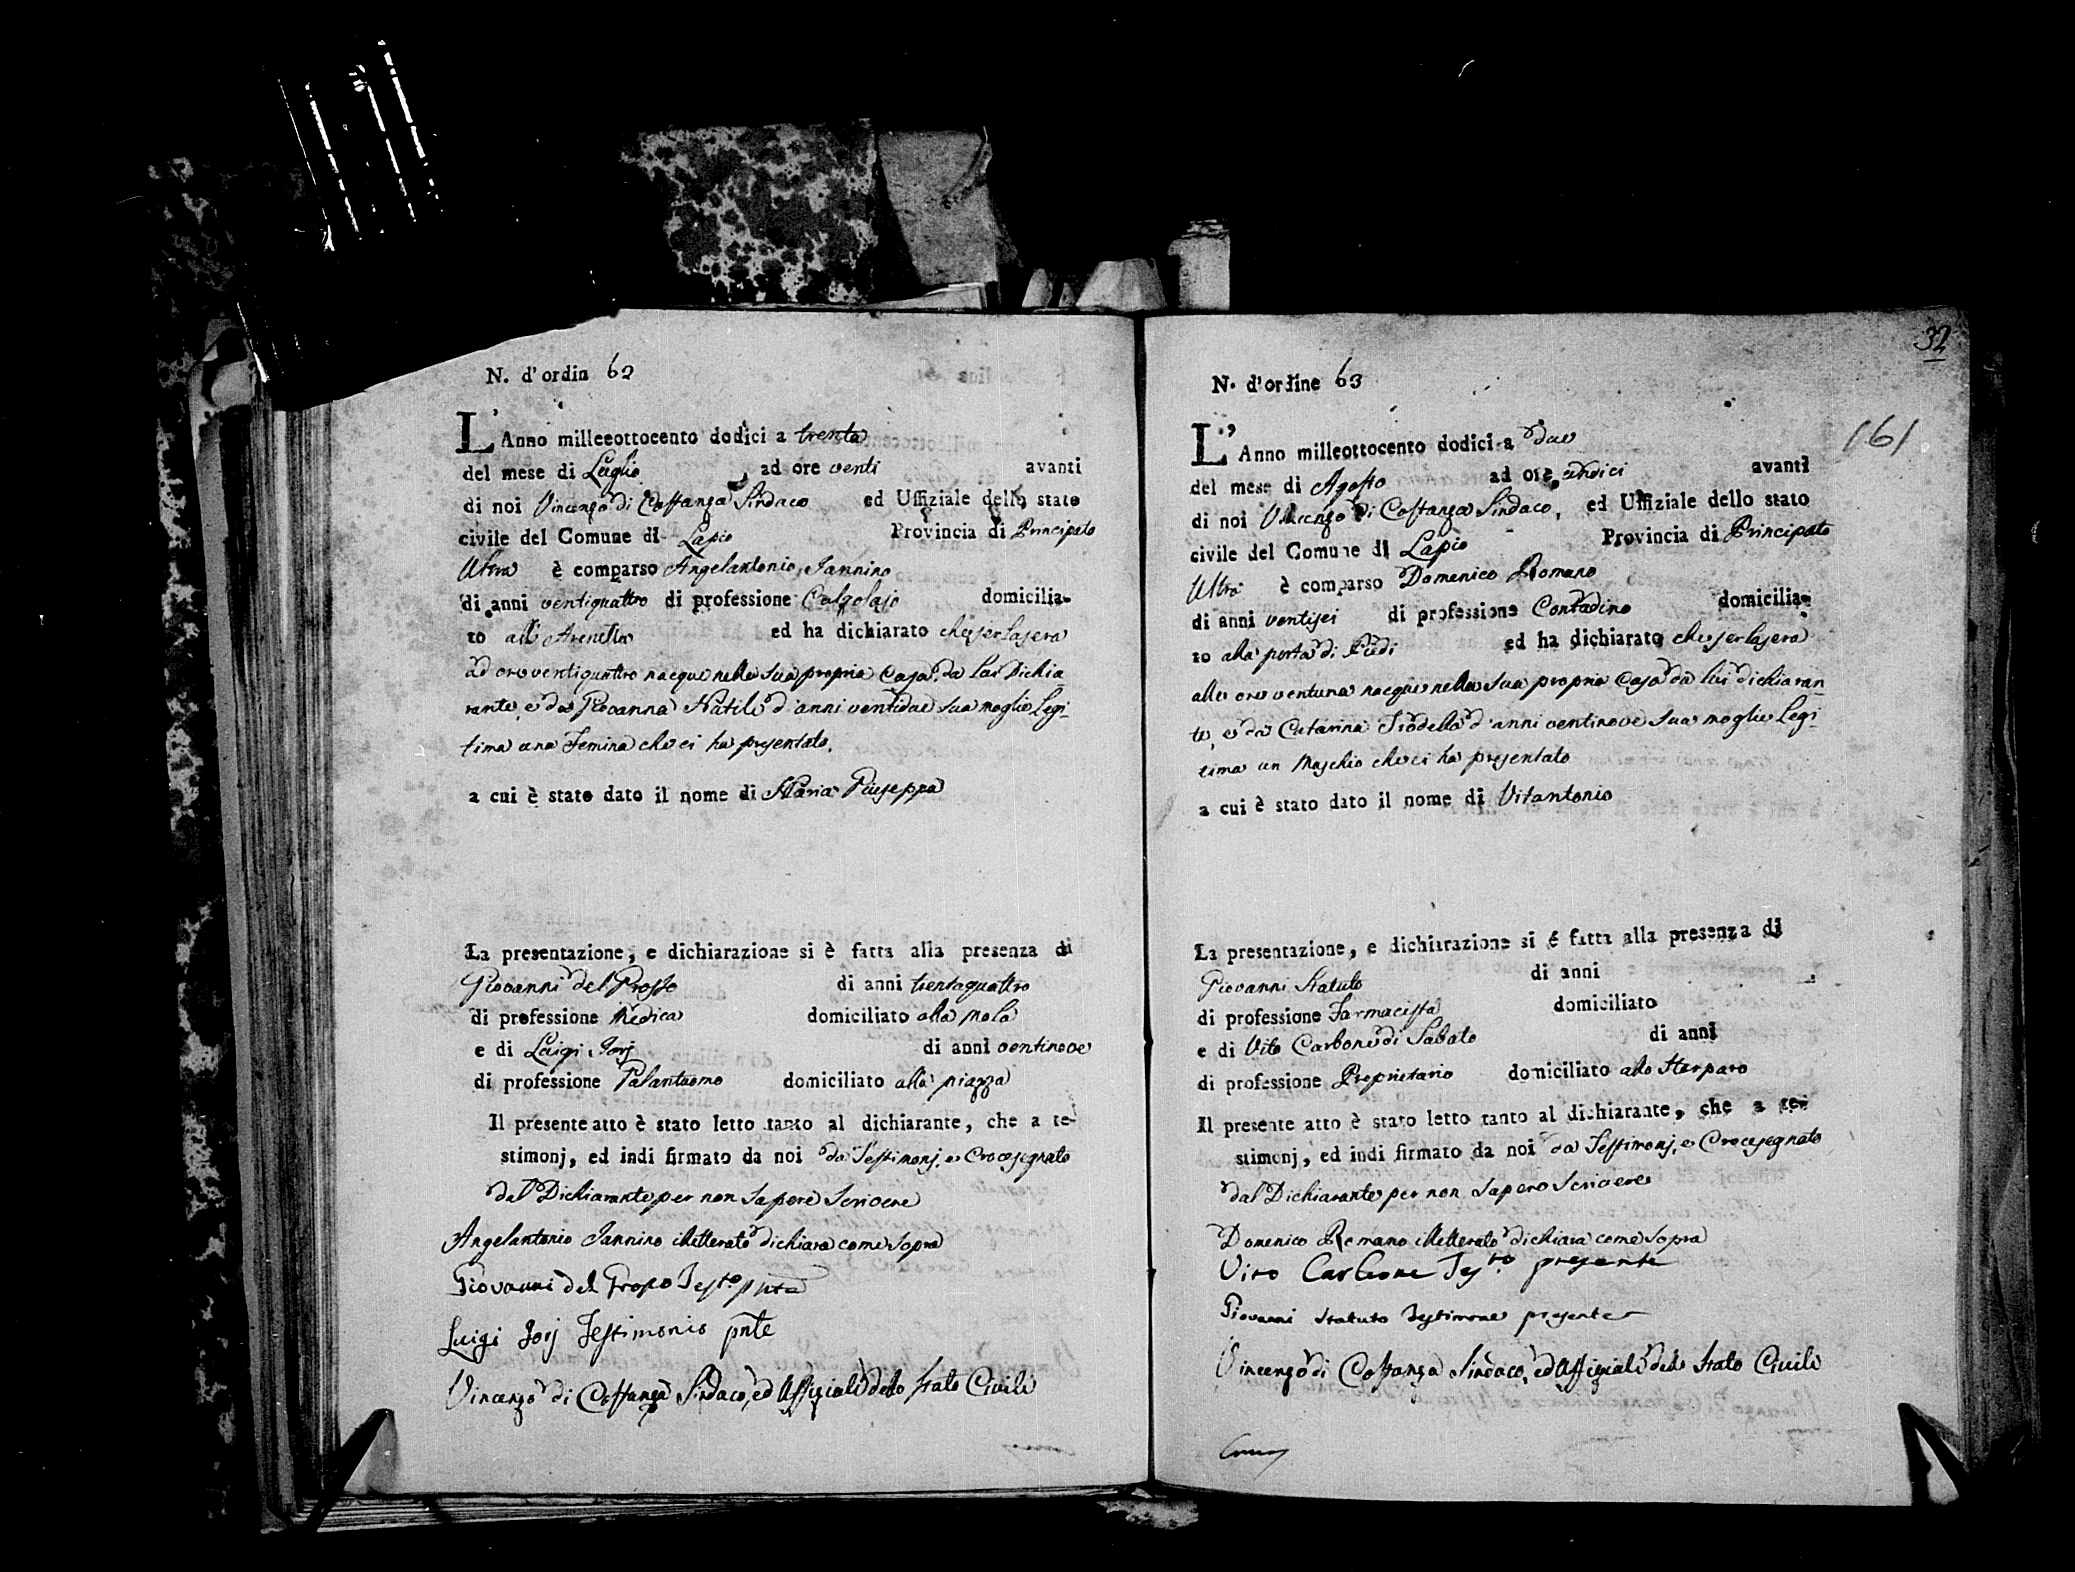 N. d'ordin 62
L'Anno milleeottocento dodici a trenta
del mese di Luglio ad ore venti avanti
di noi Vincenzo di Costanza Sindaco ed Uffiziale dello stato
civile del Comune di Lapio Provincia di Principato
Ultra è comparso Angelantonio Iannino
di anni ventiquattro di professione Calzolajo domicilia-
to all' ed ha dichiarato che jerlasera
ad ore ventiquattro nacque nella sua propria Casa da lui Dichia-
rante, e da Giovanna Natile d'anni ventidue sua moglie Legi-
tima una Femina che ci ha presentato,
a cui è stato dato il nome di Maria Giuseppa
La presentazione, e dichiarazione si è fatta alla presenza di
Giovanni del Grosso di anni trentaquattro
di professione Medica domiciliato alla Mola
e di Luigi Jorj di anni ventinove
di professione Galantuomo domiciliato alla piazza
Il presente atto è stato letto tanto al dichiarante, che a te-
stimonj, ed indi firmato da noi da Testimonj, e Crocesegnato
dal Dichiarante per non sapere scrivere
Angelantonio Iannino illetterato dichiara come sopra
Giovanni del Groso Testo
Luigi Jorj Testimonio pnte
Vincenzo di Costanza Sindaco, ed Uffiziale dello Stato Civile
32
161
N. d'ordine 63
L'Anno milleottocento dodici a due
del mese di Agosto ad ore undici avanti
di noi Vincenzo di Costanza Sindaco, ed Uffiziale dello stato
civile del Comune di Lapio Provincia di Principato
Ultra è comparso Domenico Romano
di anni ventisei di professione Contadino domicilia-
to alla porta di Piedi ed ha dichiarato che jerlasera
alle ore ventuna nacque nella sua propria Casa da lui dichiaran-
te, e da Catarina d'anni ventinove sua moglie Legi-
tima un Maschio che ci ha presentato
a cui è stato dato il nome di Vitantonio
La presentazione, e dichiarazione si é fatta alla presenza di
Giovanni Statuto di anni
di professione Farmacista domiciliato
e di Vito Carbone di Sabato di anni
di professione Proprietario domiciliato allo Sterparo
Il presente atto è stato letto tanto al dichiarante, che a te-
stimonj, ed indi firmato da noi da Testimonj, e Crocesegnato
dal Dichiarante per non sapere scrivere
Domenico Romano illetterato dichiara come sopra
Vito Carbone Testo presente
Giovanni Statuto Testimone presente
Vincenzo di Costanza Sindaco, ed Uffiziale dello Stato Civile